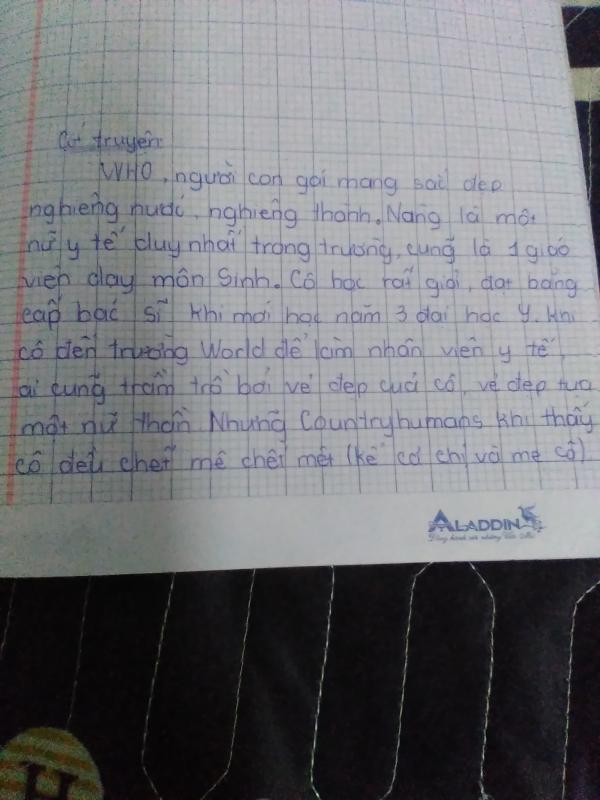 Cốt truyện:
WHO, người con gái mang sắc đẹp
nghiêng nước, nghiêng thành. Nàng là một
nữ y tế duy nhất trong trường, cũng là 1 giáo
viên dạy môn Sinh. Cô học rất giỏi, đạt bằng
cấp bác sĩ khi mới học năm 3 đại học Y. Khi
cô đến trường World để làm nhân viên y tế,
ai cũng trầm trồ bởi vẻ đẹp của cô, vẻ đẹp tựa
một nữ thần. Những Countryhumans khi thấy
cô đều chết mê chết mệt (kể cả chị và mẹ cô)
ALADDIN